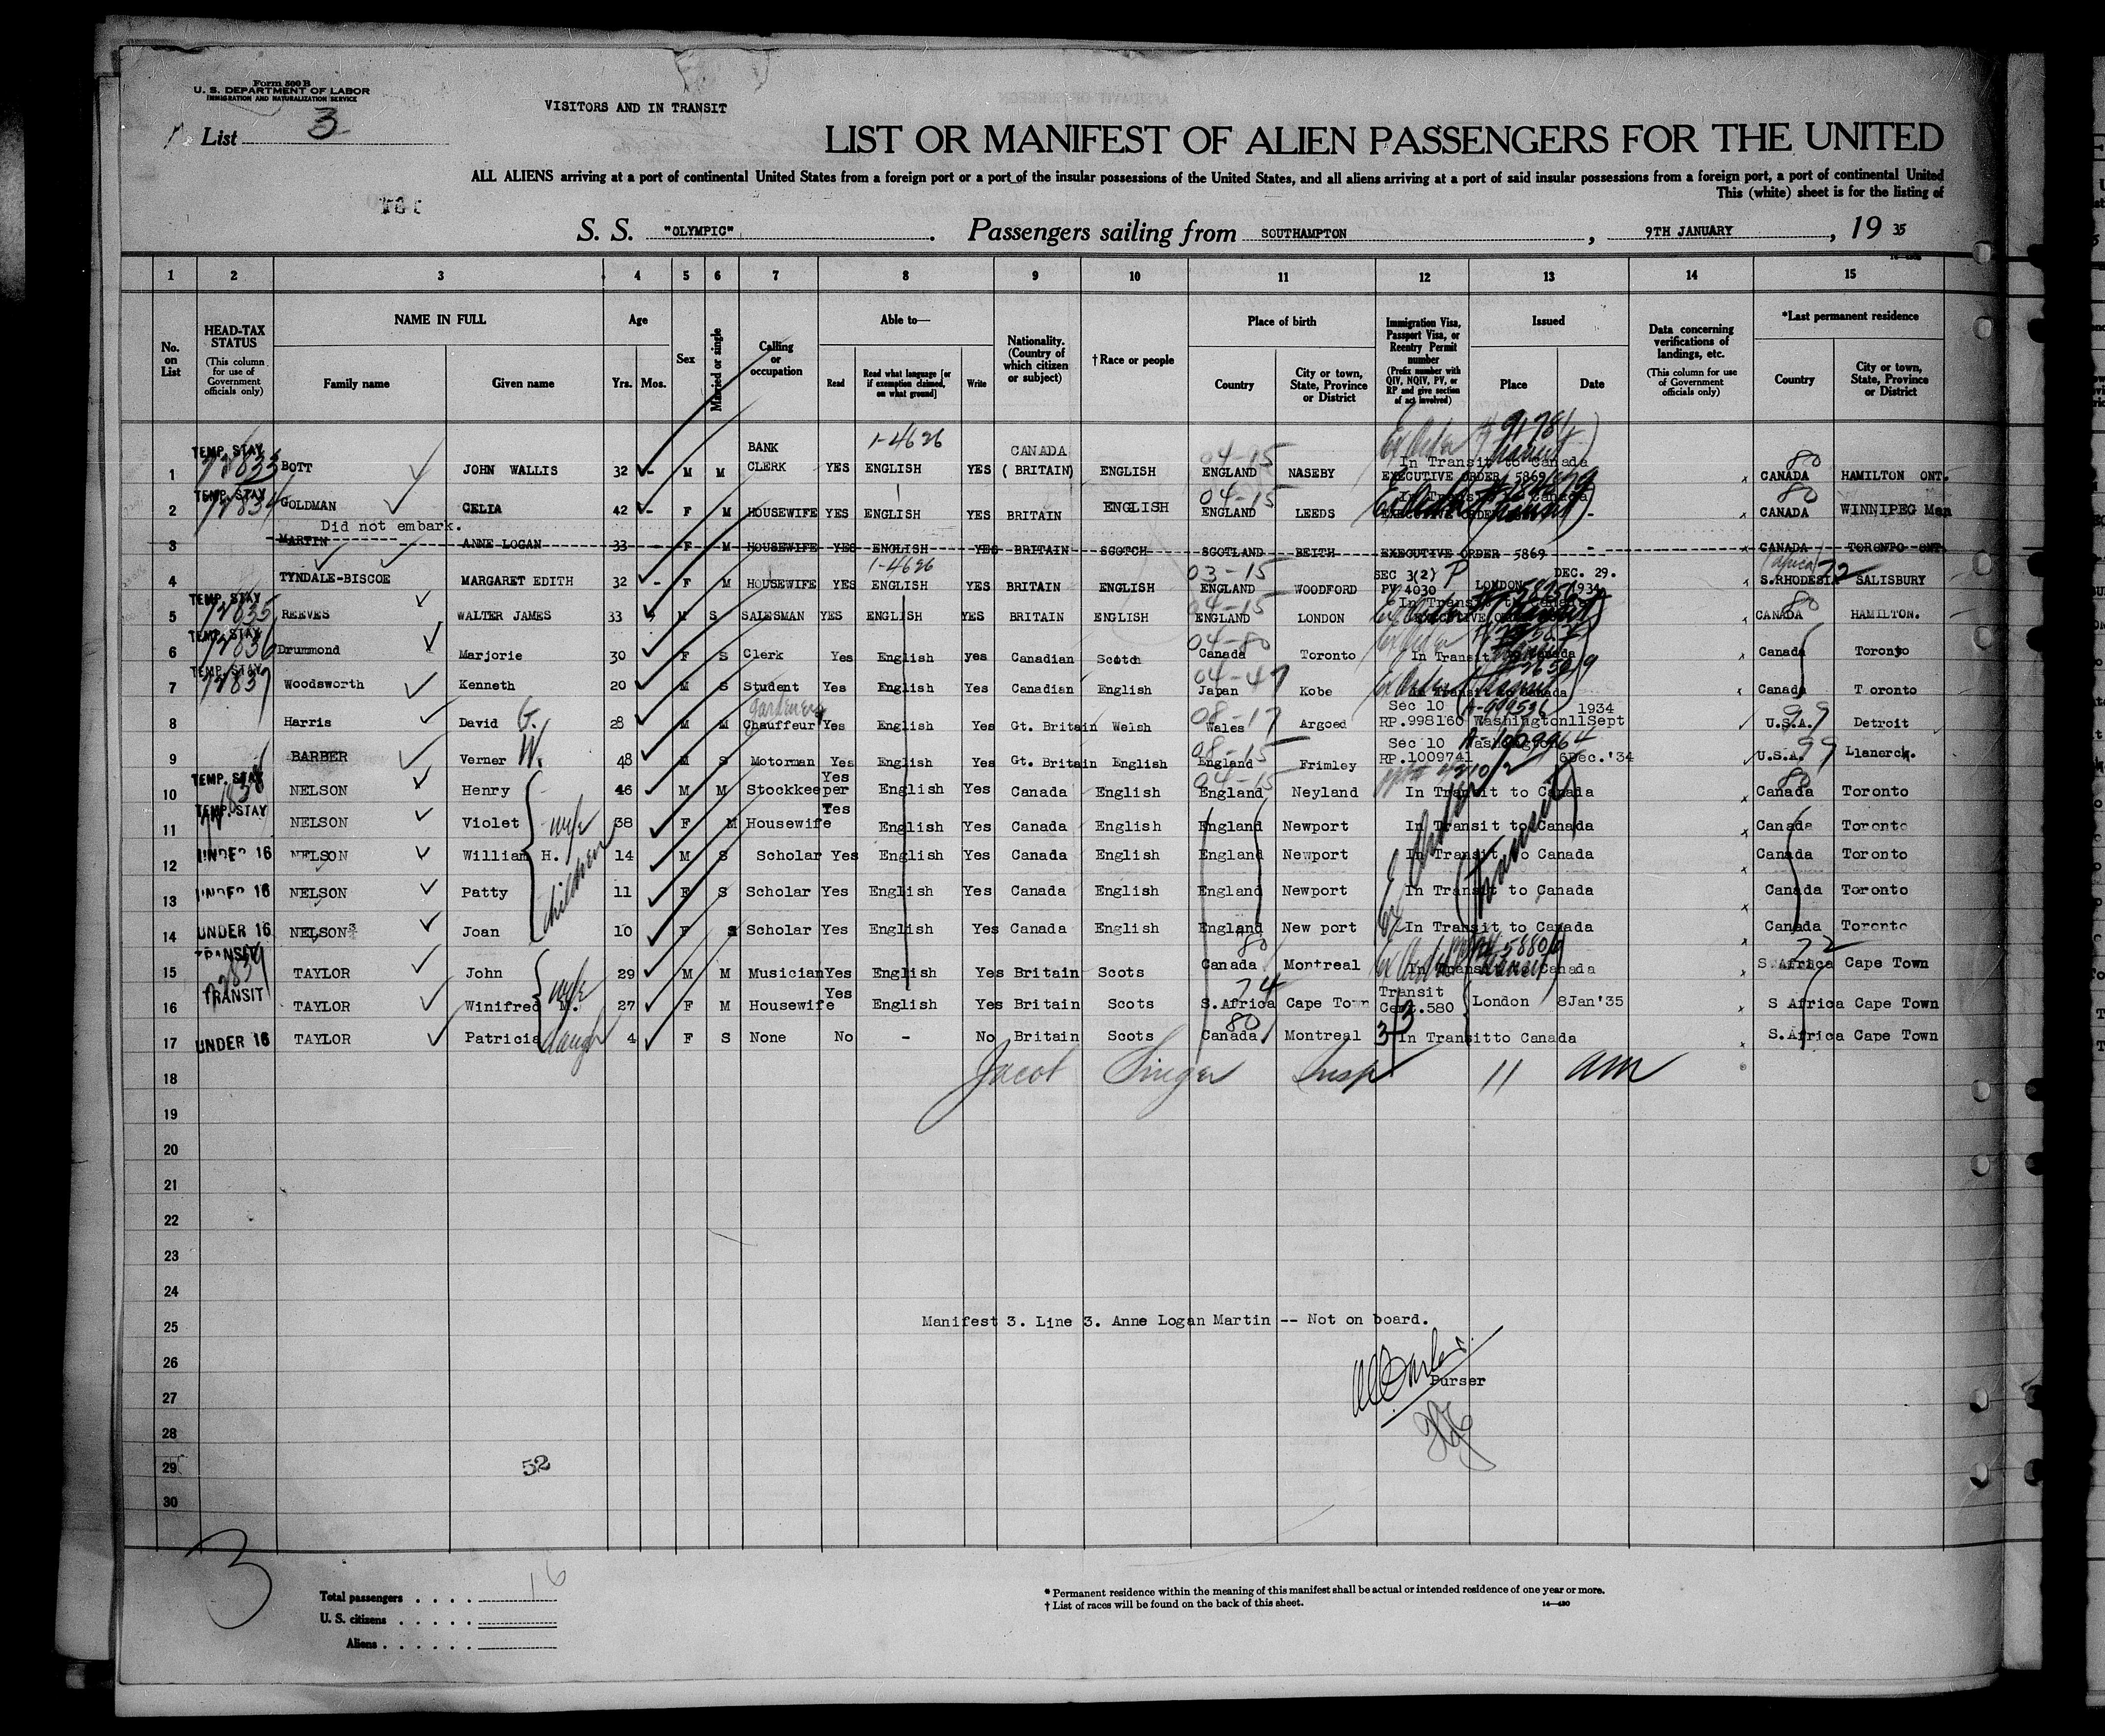 Form 500 B
U. S. DEPARTMENT OF LABOR
IMMIGRATION AND NATURALIZATION SERVICE
VISITORS AND IN TRANSIT
List 3
LIST OR MANIFEST OF ALIEN PASSENGERS FOR THE UNITED
ALL ALIENS arriving at a port of continental United States from a foreign port or a port of the insular possessions of the United States, and all aliens arriving at a port of said insular possessions from a foreign port, a port of continental United
This (white) sheet is for the listing of
S. S. "OLYMPIC". Passengers sailing from SOUTHAMPTON, 9TH JANUARY, 19 35
1 2 3 4 5 6 7 8 9 10 11 12 13 14 15
No. on List
HEAD-TAX STATUS (This column for use of Government officials only)
NAME IN FULL
Family name Given name
Age
Yrs. Mos.
Sex
Married or single
Calling or occupation
Able to—
Read
Read what language [or if exemption claimed, on what ground]
Write
Nationality. (Country of which citizen or subject)
†Race or people
Place of birth
Country
City or town, State, Province or District
Immigration Visa, Passport Visa, or Reentry Permit number (Prefix number with QIV, NQIV, PV, or RP and give section of act involved)
Issued
Place Date
Data concerning verifications of landings, etc. (This column for use of Government officials only)
*Last permanent residence
Country
City or town, State, Province or District
1 TEMP. STAY BOTT JOHN WALLIS 32 - M M BANK CLERK YES ENGLISH 1-4626 YES CANADA (BRITAIN) ENGLISH 04-15 ENGLAND NASEBY In Transit to Canada EXECUTIVE ORDER 5869 80 CANADA HAMILTON ONT.
2 TEMP. STAY GOLDMAN CELIA 42 - F M HOUSEWIFE YES ENGLISH YES BRITAIN ENGLISH 04-15 ENGLAND LEEDS In Transit to Canada EXECUTIVE ORDER - 80 CANADA WINNIPEG Man
Did not embark.
3 MARTIN ANNE LOGAN 33 - F M HOUSEWIFE YES ENGLISH YES BRITAIN SCOTCH SCOTLAND BEITH EXECUTIVE ORDER 5869 - CANADA TORONTO ONT.
4 TYNDALE-BISCOE MARGARET EDITH 32 - F M HOUSEWIFE YES ENGLISH 1-4626 YES BRITAIN ENGLISH 03-15 ENGLAND WOODFORD SEC 3(2) P PV 4030 LONDON DEC. 29. 1934 (Africa) 72 S.RHODESIA SALISBURY
5 TEMP. STAY 72835 REEVES WALTER JAMES 33 M S SALESMAN YES ENGLISH YES BRITAIN ENGLISH 04-15 ENGLAND LONDON In Transit to Canada 80 CANADA HAMILTON.
6 TEMP. STAY 72836 Drummond Marjorie 30 F S Clerk Yes English yes Canadian Scotch 04-80 Canada Toronto In Transit to Canada Canada Toronto
7 TEMP. STAY 72837 Woodsworth Kenneth 20 M S Student Yes English Yes Canadian English 04-47 Japan Kobe In Transit to Canada Canada Toronto
8 Harris David G. 28 M M Gardener Chauffeur Yes English Yes Gt. Britain Welsh 08-17 Wales Argoed Sec 10 RP.998160 A-999536 Washington 11Sept 1934 99 U.S.A. Detroit
9 BARBER Verner W. 48 M S Motorman Yes English Yes Gt. Britain English 08-15 England Frimley Sec 10 RP.1009741 Washington 6Dec.'34 99 U.S.A. Llanerck.
10 TEMP. STAY NELSON Henry 46 M M Stockkeeper Yes English Yes Canada English 04-15 England Neyland In Transit to Canada 80 Canada Toronto
11 TEMP. STAY NELSON Violet wife 38 F M Housewife Yes English Yes Canada English England Newport In Transit to Canada Canada Toronto
12 UNDER 16 NELSON William H. children 14 M S Scholar Yes English Yes Canada English England Newport In Transit to Canada Canada Toronto
13 UNDER 16 NELSON Patty 11 F S Scholar Yes English Yes Canada English England Newport In Transit to Canada (Transit) Canada Toronto
14 UNDER 16 NELSON Joan 10 F S Scholar Yes English Yes Canada English England New port In Transit to Canada Canada Toronto
15 TRANSIT TAYLOR John 29 M M Musician Yes English Yes Britain Scots 80 Canada Montreal In Transit to Canada 72 S.Africa Cape Town
16 TRANSIT TAYLOR Winifred M. wife 27 F M Housewife Yes English Yes Britain Scots 74 S.Africa Cape Town Transit Cert.580 London 8Jan'35 S Africa Cape Town
17 UNDER 16 TAYLOR Patricia daugh 4 F S None No - No Britain Scots 80 Canada Montreal 3/3 In Transitto Canada S.Africa Cape Town
18 Jacob Singer Insp 11 am
19
20
21
22
23
24
25 Manifest 3. Line 3. Anne Logan Martin -- Not on board.
26
27 Purser
28
29 52
30
3
Total passengers . . . . 16
U. S. citizens . . . . .
Aliens . . . . . .
* Permanent residence within the meaning of this manifest shall be actual or intended residence of one year or more.
† List of races will be found on the back of this sheet.
14—430